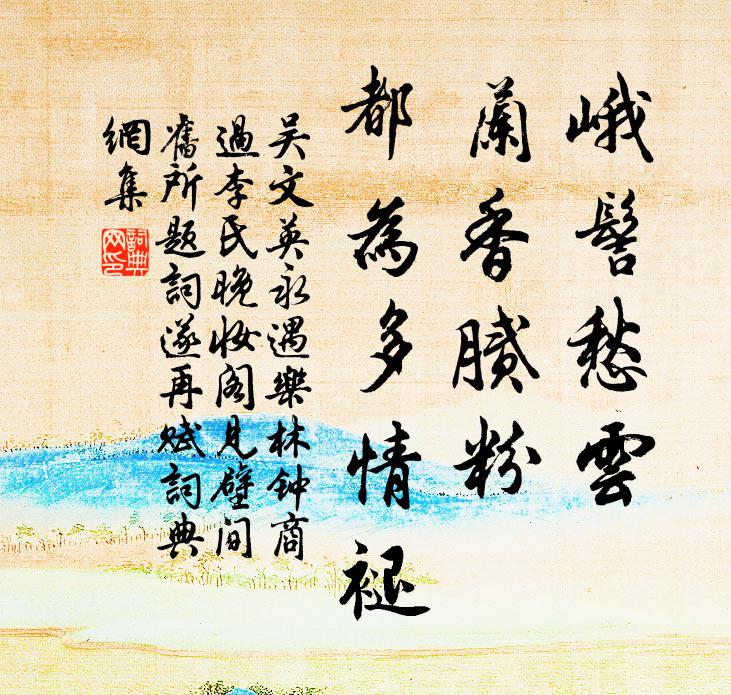 峨髻愁雲
蘭香膩粉
都為多情褪
吴文英永遇樂林钟商
過李氏晚妆阁見壁间
舊所题詞遂再赋詞典
網集
詞典
网印